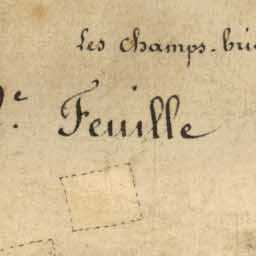 Les champs-bri
e. Feuille